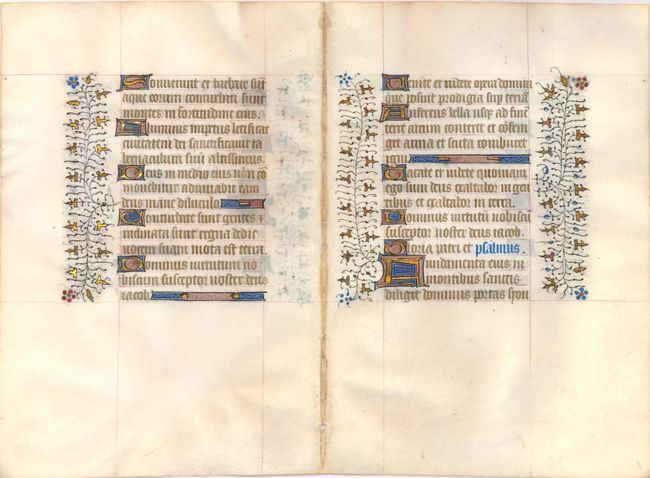 Sonuerunt et turbate sūt
aque eorum conturbati sunt
montes in fortitudine eius.
Fluminis impetus letificat
ciuitatem dei sanctificauit ta
bernaculum suū altissimus.
Deus in medio eius non cō
mouebitur adiuuabit eam
deus mane diluculo
Conturbate sunt gentes et
inclinata sunt regna dedit
uocem suam mota est terra.
Dominus uirtutum no
biscum susceptor noster deus
iacob.
Uenite et uidete opera domini
que posuit prodigia sup terrā
Auferens bella usqz ad finē
terre arcum conteret et cōfrin
get arma et scuta comburet
Uacate et uidete quoniam
ego sum deus exaltabor in gen
tibus et exaltabor in terra.
Dominus uirtutū nobiscū
susceptor noster deus iacob.
Gloria patri et psalmus.
Fundamenta eius in
montibus sanctis
diligit dominus portas syon